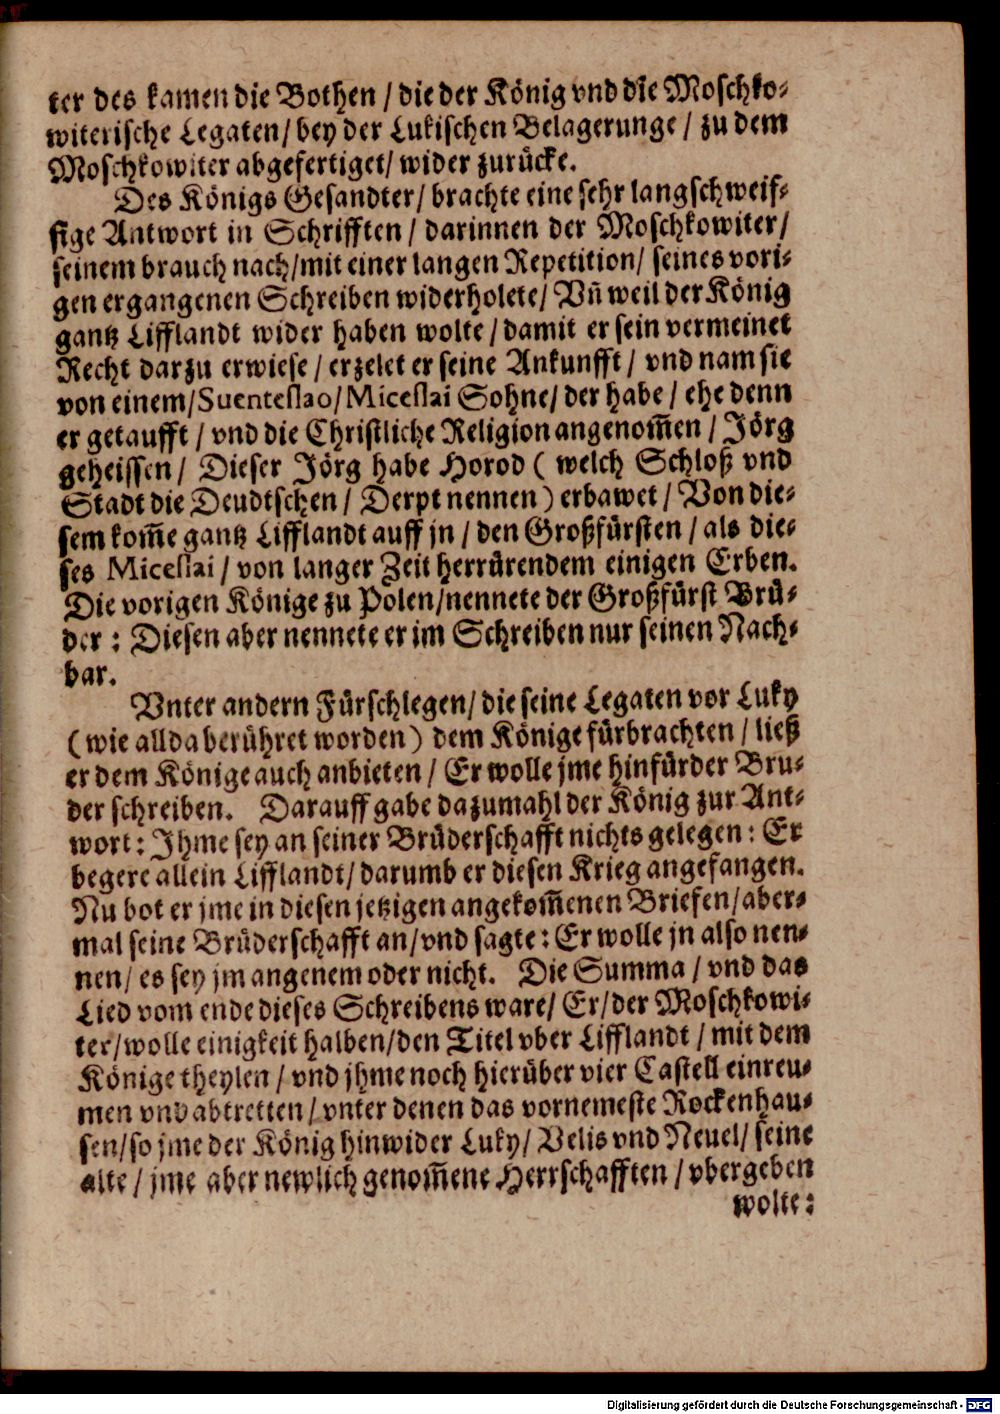 ter des kamen die Bothen / die der König vnd die Moschko-
witerische Legaten/ bey der Lukischen Belagerunge / zu dem
Moschkowiter abgefertiget/ wider zurücke.
Des Königs Gesandter/ brachte eine sehr langschweif-
fige Antwort in Schrifften / darinnen der Moschkowiter/
seinem brauch nach/mit einer langen Repetition/ seines vori-
gen ergangenen Schreiben widerholete/ Vñ weil der König
gantz Lifflandt wider haben wolte / damit er sein vermeinet
Recht darzu erwiese / erzelet er seine Ankunfft / vnd nam sie
von einem/Suenteslao/Miceslai Sohne/ der habe / ehe denn
er getaufft / vnd die Christliche Religion angenom̃en / Jörg
geheissen / Dieser Jörg habe Horod ( welch Schloß vnd
Stadt die Deudtschen / Derpt nennen ) erbawet / Von die-
sem kom̃e gantz Lifflandt auff jn / den Großfürsten / als die-
ses Miceslai / von langer Zeit herrürendem einigen Erben.
Die vorigen Könige zu Polen/nennete der Großfürst Brü-
der : Diesen aber nennete er im Schreiben nur seinen Nach-
bar.
Vnter andern Fürschlegen/ die seine Legaten vor Luky
( wie allda berühret worden ) dem Könige fürbrachten / ließ
er dem Könige auch anbieten / Er wolle jme hinfürder Bru-
der schreiben. Darauff gabe dazumahl der König zur Ant-
wort : Jhme sey an seiner Brüderschafft nichts gelegen : Er
begere allein Lifflandt/ darumb er diesen Krieg angefangen.
Nu bot er jme in diesen jetzigen angekom̃enen Briefen/aber-
mal seine Brüderschafft an/vnd sagte : Er wolle jn also nen-
nen/ es sey jm angenem oder nicht. Die Summa / vnd das
Lied vom ende dieses Schreibens ware/ Er/der Moschkowi-
ter/wolle einigkeit halben/den Titel vber Lifflandt / mit dem
Könige theylen / vnd jhme noch hierüber vier Castell einreu-
men vnd abtretten / vnter denen das vornemeste Rockenhau-
sen/so jme der König hinwider Luky/ Velis vnd Neuel/ seine
alte / jme aber newlich genom̃ene Herrschafften / vbergeben
wolte:
Digitalisierung gefördert durch die Deutsche Forschungsgemeinschaft - DFG